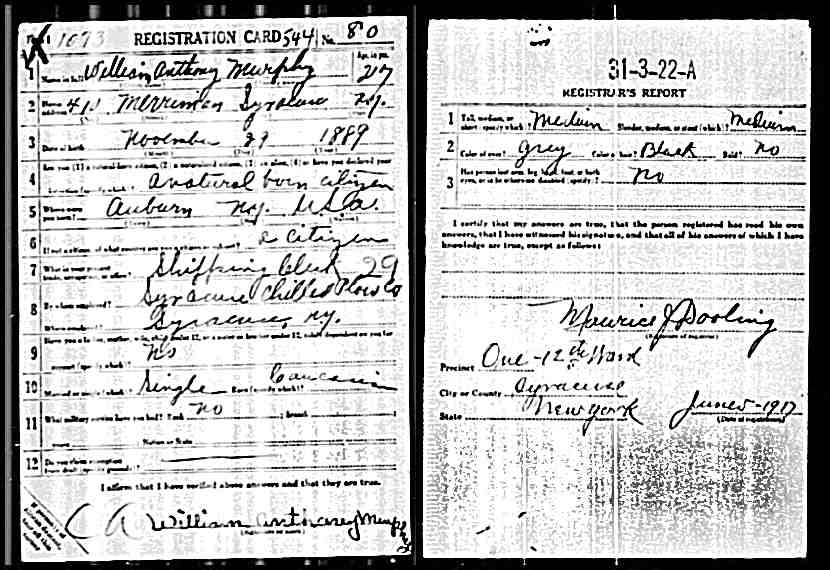 Form 1 1693 REGISTRATION CARD 544 No. 80
1 Name in full William Anthony Murphy Age, in yrs. 27
2 Home address 410 Merriman Syracuse N.Y.
3 Date of birth November 29 1889
4 Are you (1) a natural-born citizen, (2) a naturalized citizen, (3) an alien, (4) or have you declared your
intention (specify which)? A natural born citizen
5 Where were you born? Auburn N.Y. U.S.A.
6 If not a citizen, of what country are you a citizen or subject? a citizen
7 What is your present trade, occupation, or office? Shipping Clerk 29
8 By whom employed? Syracuse Chilled Plow Co
Where employed? Syracuse, N.Y.
9 Have you a father, mother, wife, child under 12, or a sister or brother under 12, solely dependent on you for
support (specify which)? No
10 Married or single (which)? Single Race (specify which)? Caucasian
11 What military service have you had? Rank no ; branch
years ; Nation or State
12 Do you claim exemption from draft (specify grounds)?
I affirm that I have verified above answers and that they are true.
William Anthony Murphy
31-3-22-A
REGISTRAR'S REPORT
1 Tall, medium, or short (specify which)? Medium Slender, medium, or stout (which)? Medium
2 Color of eyes? Grey Color of hair? Black Bald? No
3 Has person lost arm, leg, hand, foot, or both eyes, or is he otherwise disabled (specify)? No
I certify that my answers are true, that the person registered has read his own
answers, that I have witnessed his signature, and that all of his answers of which I have
knowledge are true, except as follows:
Maurice J Dooling
(Signature of registrar)
Precinct One - 12th Ward
City or County Syracuse
State New York June 5 - 1917
(Date of registration)